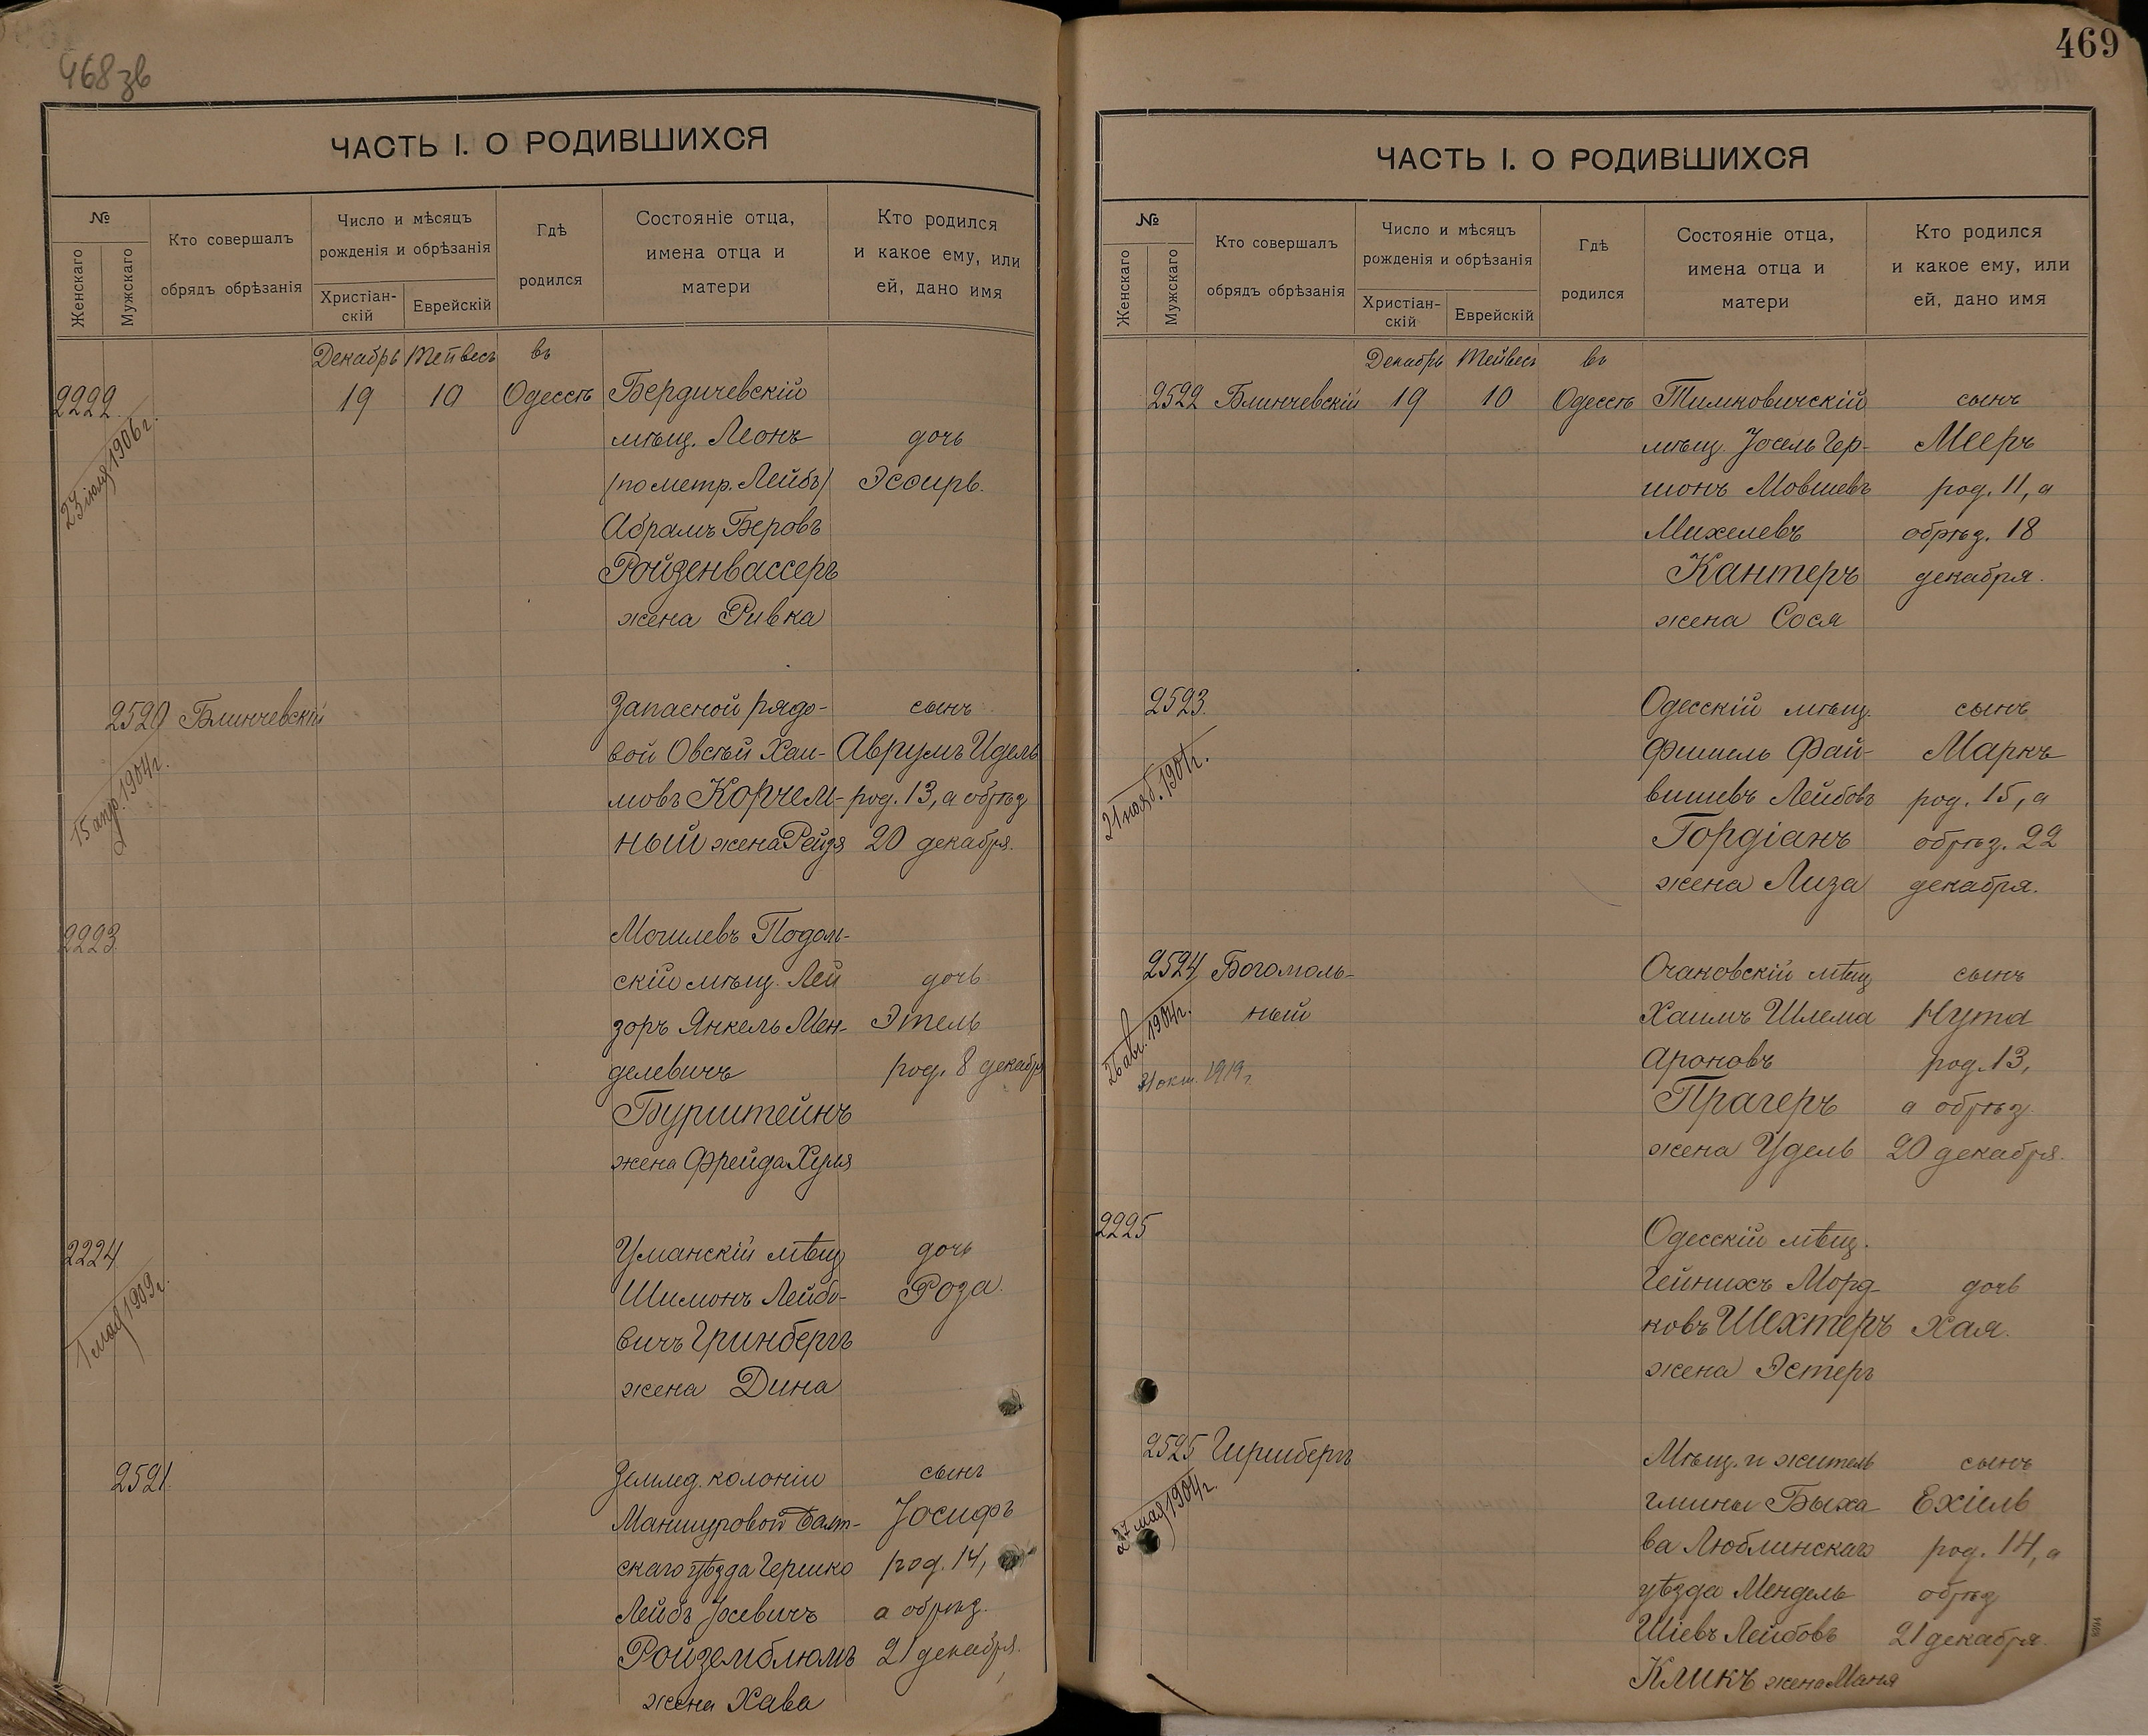 468зв
ЧАСТЬ I. О РОДИВШИХСЯ
№
Женскаго
Мужскаго
Кто совершалъ
обрядъ обрѣзанія
Число и мѣсяцъ
рожденія и обрѣзанія
Христіан-
скій
Еврейскій
Гдѣ
родился
Состояніе отца,
имена отца и
матери
Кто родился
и какое ему, или
ей, дано имя
Декабрь Тейвесъ въ
2222 19 10 Одессѣ Бердичевскій
мѣщ. Леонъ дочь
/по метр. Лейбъ/ Эсѳирь.
23 іюля 1906 г.
Абрамъ Беровъ
Ройзенвассеръ
жена Ривка
2520 Блинчевскій Запасной рядо- сынъ
вой Овсѣй Хаи- Аврумъ Идель
15 апр. 1904 г.
мовъ Корчем- род. 13, а обрѣз.
ный жена Рейзя 20 декабря.
2223 Могилевъ Подоль-
скій мѣщ. Лей дочь
зоръ Янкель Мен- Этель
делевичъ род. 8 декабр
Бурштейнъ
жена Фрейда Хуля
2224 Уманскій мѣщ. дочь
Шимонъ Лейбо- Роза.
1 мая 1909 г.
вичъ Гринбергъ
жена Дина
2521 Землед. колоніи сынъ
Маншуровой Балт- Іосифъ
скаго уѣзда Гершко род. 14,
Лейбъ Іосевичъ а обрѣз.
Ройземблюмъ 21 декабря.
жена Хава
469
ЧАСТЬ I. О РОДИВШИХСЯ
№
Женскаго
Мужскаго
Кто совершалъ
обрядъ обрѣзанія
Число и мѣсяцъ
рожденія и обрѣзанія
Христіан-
скій
Еврейскій
Гдѣ
родился
Состояніе отца,
имена отца и
матери
Кто родился
и какое ему, или
ей, дано имя
Декабрь Тейвесъ въ
2522 Блинчевскій 19 10 Одессѣ Тимковичскій сынъ
мѣщ. Іосель Гер- Мееръ
шонъ Мовшевъ род. 11, а
Михелевъ обрѣз. 18
Кантеръ декабря.
жена Сося
2523 Одесскій мѣщ. сынъ
Фишель Фай- Маркъ
21 нояб. 1901 г.
вишевъ Лейбовъ род. 15, а
Гордіанъ обрѣз. 22
жена Лиза декабря.
2524 Богомоль- Очаковскій мѣщ. сынъ
ный Хаимъ Шлема Нута
26 авг. 1904 г.
31 окт. 1919 г.
Ароновъ род. 13,
Прагеръ а обрѣз.
жена Удель 20 декабря.
2225 Одесскій мѣщ.
Гейнихъ Морд- дочь
ковъ Шехтеръ Хая.
жена Эстеръ
2525 Гиршбергъ Мѣщ. и житель сынъ
гмины Быха- Ехіель
27 мая 1904 г.
ва Люблинскаго род. 14, а
уѣзда Мендель обрѣз.
Шіевъ Лейбовъ 21 декабря.
Кликъ жена Маня